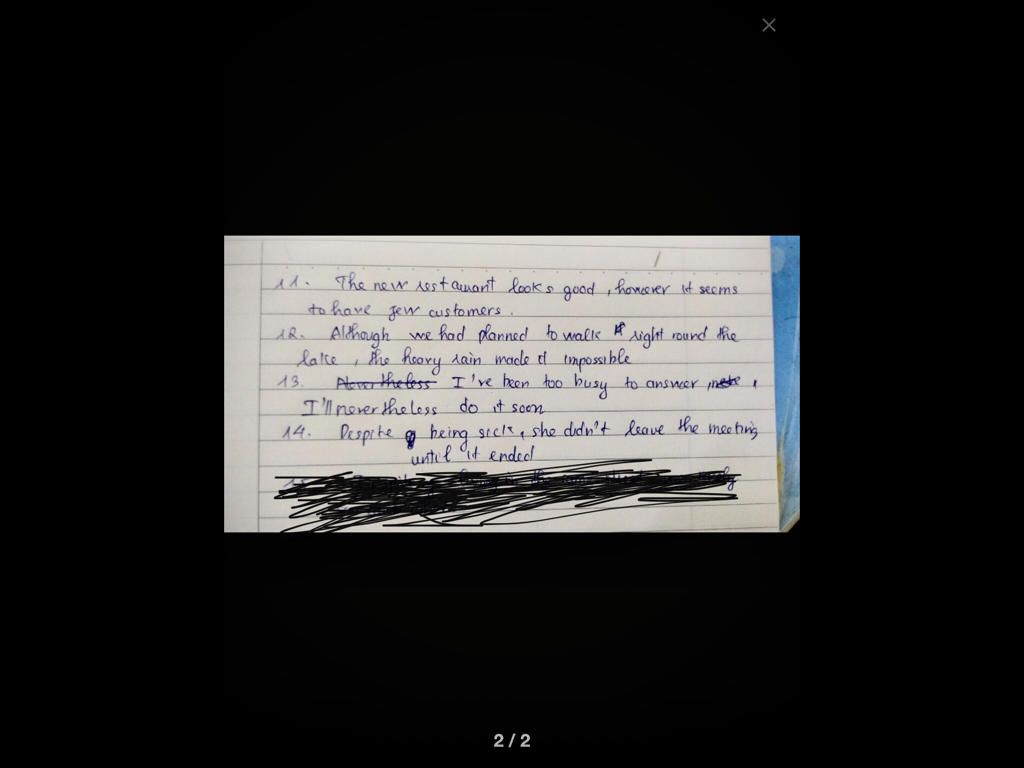 11. The new restaurant looks good, however it seems
to have few customers.
12. Although we had planned to walk right round the
lake, the heavy rain made it impossible
13. Never theless I've been too busy to answer,
I'll nevertheless do it soon
14. Despite being sick, she didn't leave the meeting
until it ended
2/2